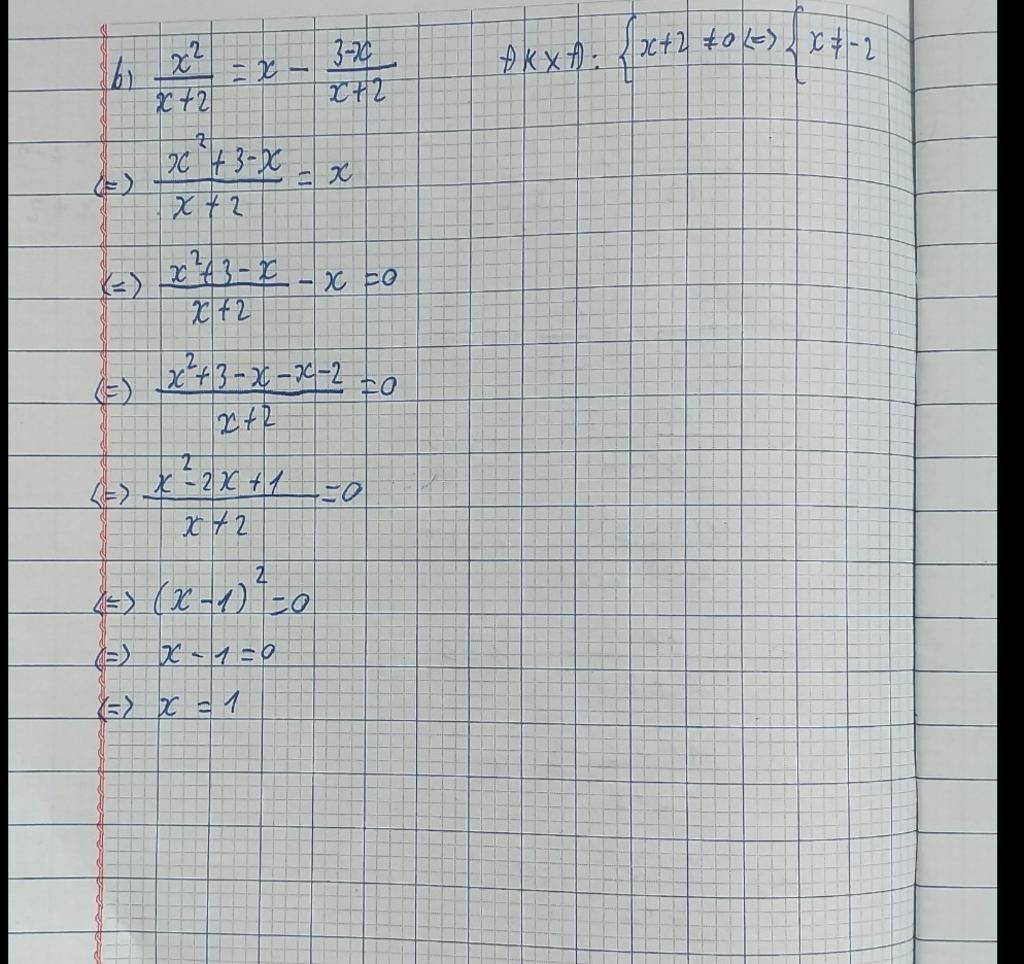 b) x²/(x+2) = x - (3-x)/(x+2) ĐKXĐ: { x+2 ≠0 <=> { x ≠ -2
<=> (x²+3-x)/(x+2) = x
<=> (x²+3-x)/(x+2) - x =0
<=> (x²+3-x-x-2)/(x+2) =0
<=> (x²-2x+1)/(x+2) =0
<=> (x-1)² =0
<=> x-1=0
<=> x = 1